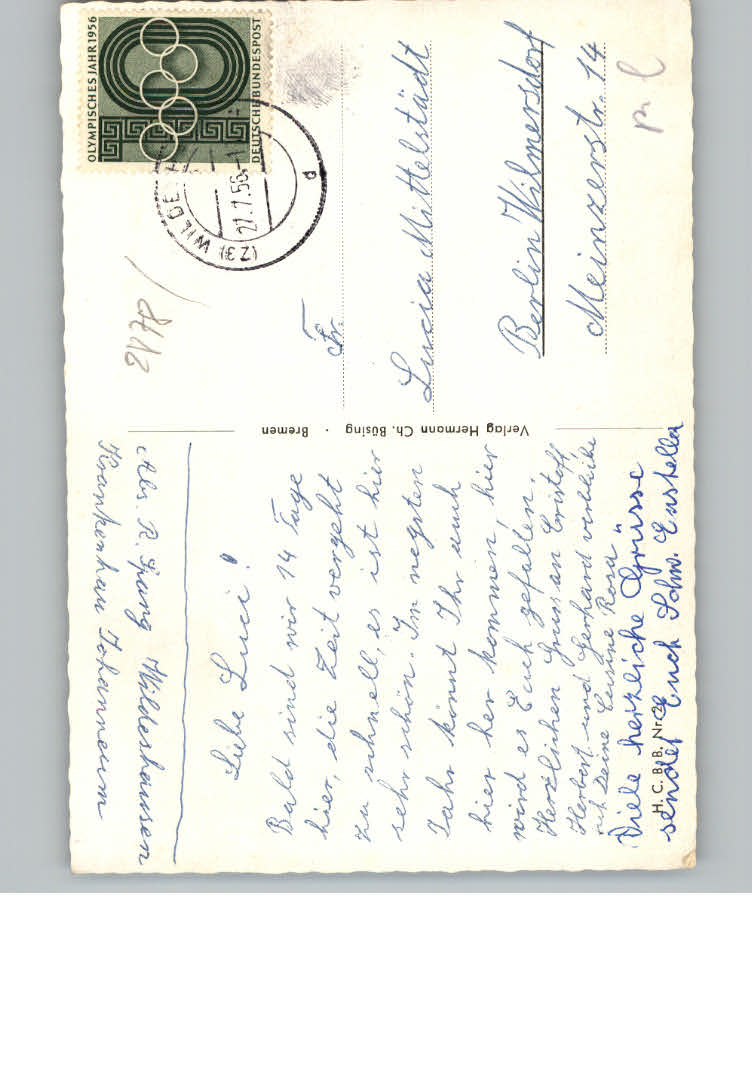 Krankenhaus Johanneum
Abs. R. Spang Wildeshausen
Liebe Luci!
Bald sind wir 14 Tage
hier, die Zeit vergeht
zu schnell, es ist hier
sehr schön. Im negsten
Jahr könnt Ihr auch
hier her kommen, hier
wird es Euch gefallen.
Herzlichen Gruss an Cristoff
Herbert und Gerhard verbleibe
ich Deine Cusine Rosa
Viele herzliche Grüsse
sendet Euch Schw. Eustella
H. C. B. B. Nr. 26
Verlag Hermann Ch. Büsing · Bremen
OLYMPISCHES JAHR 1956
DEUTSCHE BUNDESPOST
(23) WILDE
27.7.56
d
Fr.
Lucia Mittelstädt
Berlin Wilmersdorf
Meinzerstr. 14